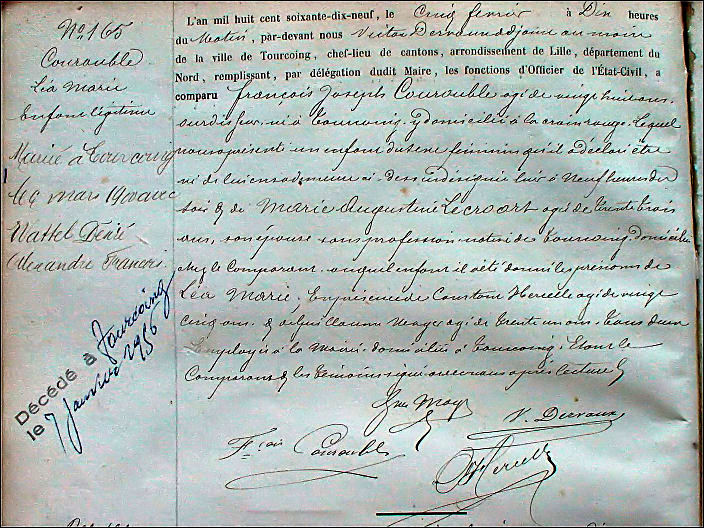 No 165
Courouble
Léa Marie
Enfant légitime
Mariée à Tourcoing
le 9 mars 1900 avec
Wattel Désiré
Alexandre François
Décédé à Tourcoing
le 7 Janvier 1956
L'an mil huit cent soixante-dix-neuf, le Cinq février à Dix heures
du Matin, par-devant nous Victor Dervaux adjoint au maire
de la ville de Tourcoing, chef-lieu de cantons, arrondissement de Lille, département du
Nord, remplissant, par délégation dudit Maire, les fonctions d'Officier de l'État-Civil, a
comparu François Joseph Courouble agé de vingt huit ans,
ourdisseur, né à Tourcoing, y domicilié à la croix rouge, lequel
nous a présenté un enfant du sexe féminin qu'il a déclaré être
né de lui en sa demeure ci-dessus désignée hier à Neuf heures du
soir & de Marie Augustine Lecroart agée de trente trois
ans, son épouse, sans profession, native de Tourcoing, domiciliée
chez le Comparant, auquel enfant il a été donné les prénoms de
Léa Marie. En présence de Constant Hercelle agé de vingt
cinq ans, & de Guillaume agé de trente un ans, tous deux
Employés à la Mairie, domiciliés à Tourcoing. Et ont le
Comparant & les témoins signé avec nous après lecture
V. Dervaux
F.çois Courouble
Hercelle